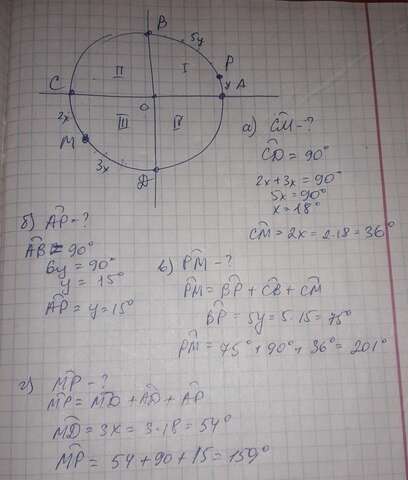 B
5y
I
P
II
y
A
C
O
2x
III
IV
M
3x
D
а) C͡M - ?
C͡D = 90°
2x + 3x = 90°
5x = 90°
x = 18°
C͡M = 2x = 2·18 = 36°
б) A͡P - ?
A͡B = 90°
6y = 90°
y = 15°
A͡P = y = 15°
в) P͡M - ?
P͡M = B͡P + C͡B + C͡M
B͡P = 5y = 5·15 = 75°
P͡M = 75° + 90° + 36° = 201°
г) M͡P - ?
M͡P = M͡D + A͡D + A͡P
M͡D = 3x = 3·18 = 54°
M͡P = 54 + 90 + 15 = 159°